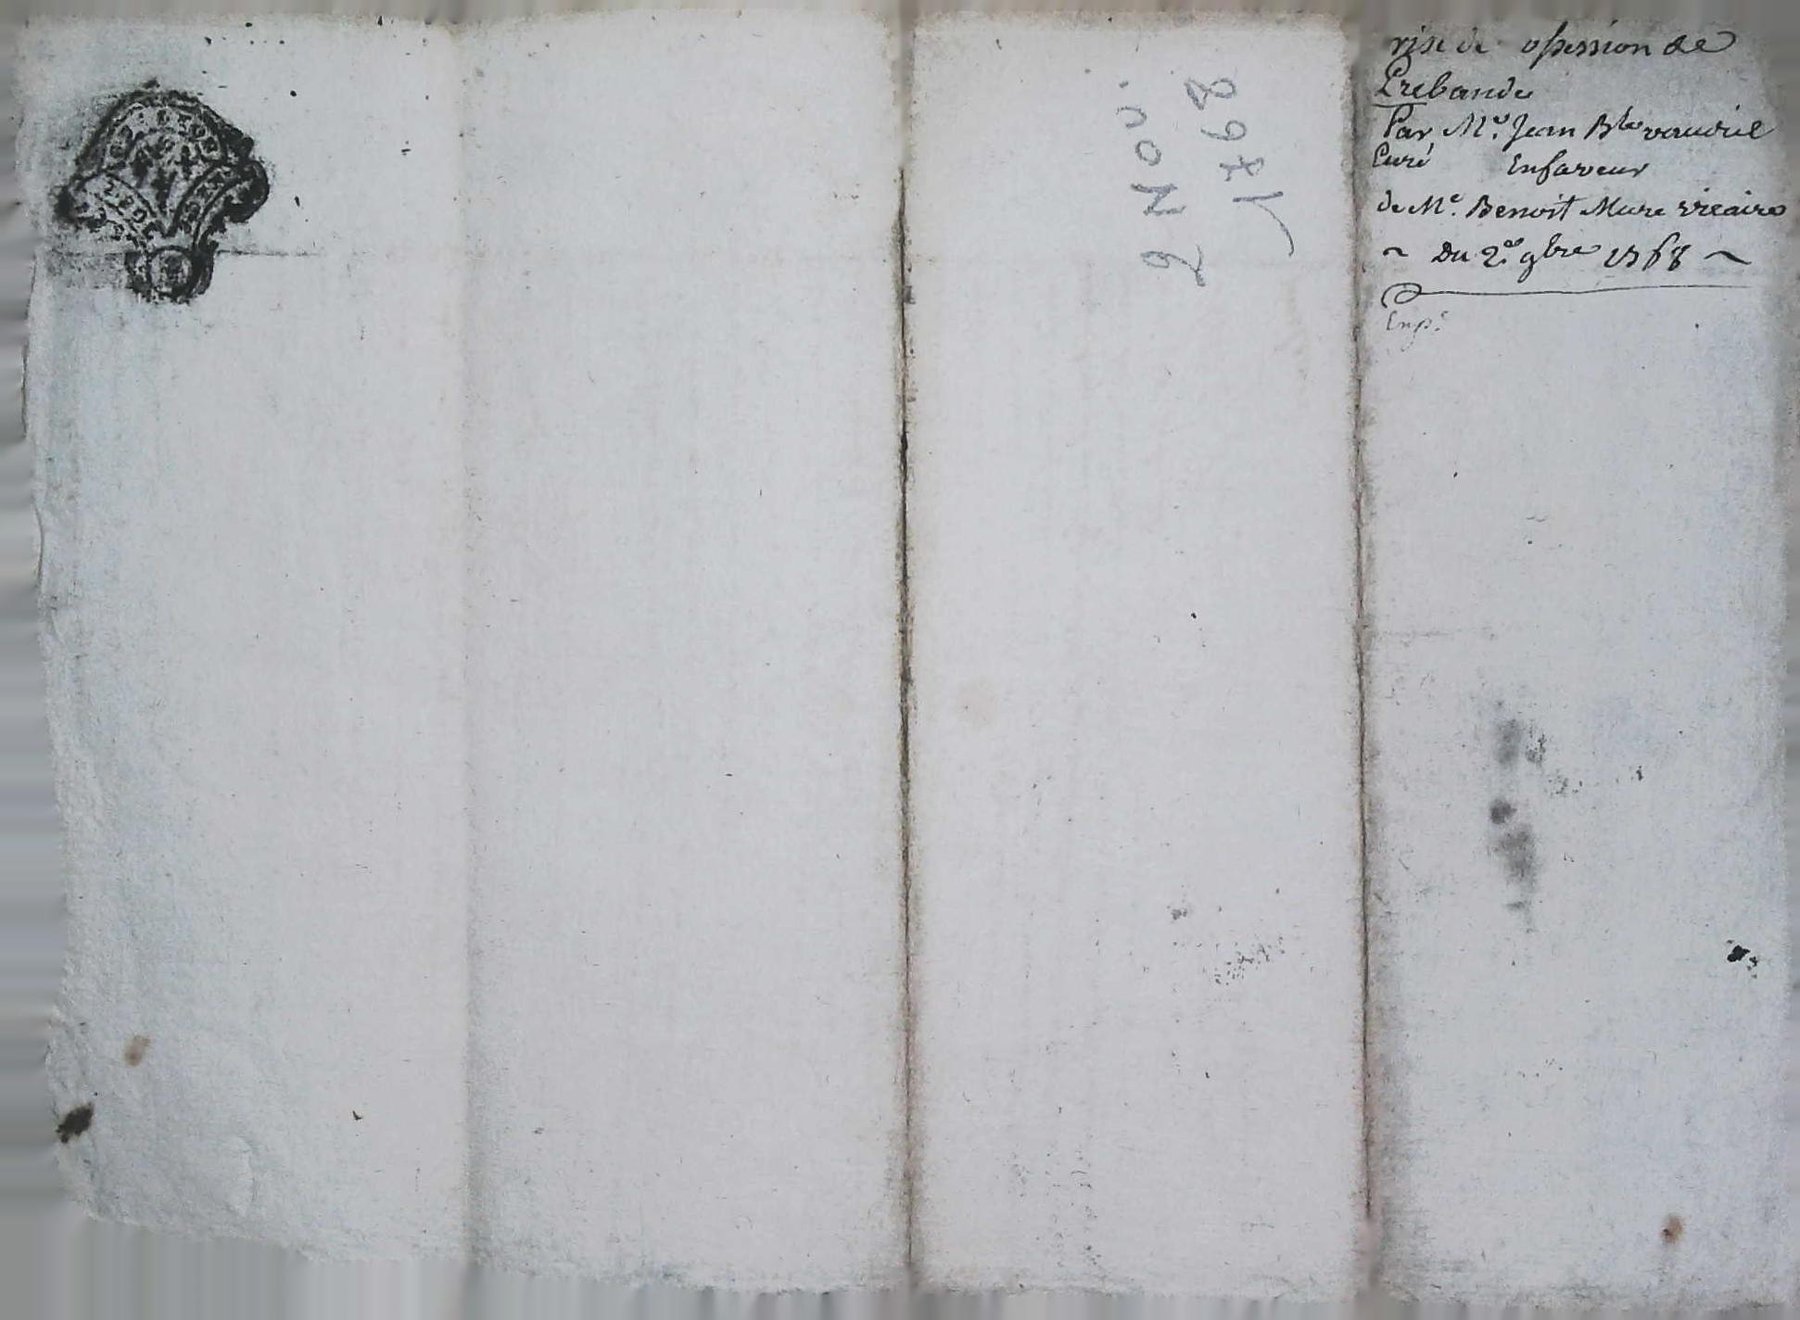 rise de ossession de
Prebande
Par Me. Jean Bte
Curé Enfaveur
de Me. Benoit Mure vicaire
~ Du 2e. 9bre 1768 ~
Exp.e
2 Nov.
1768